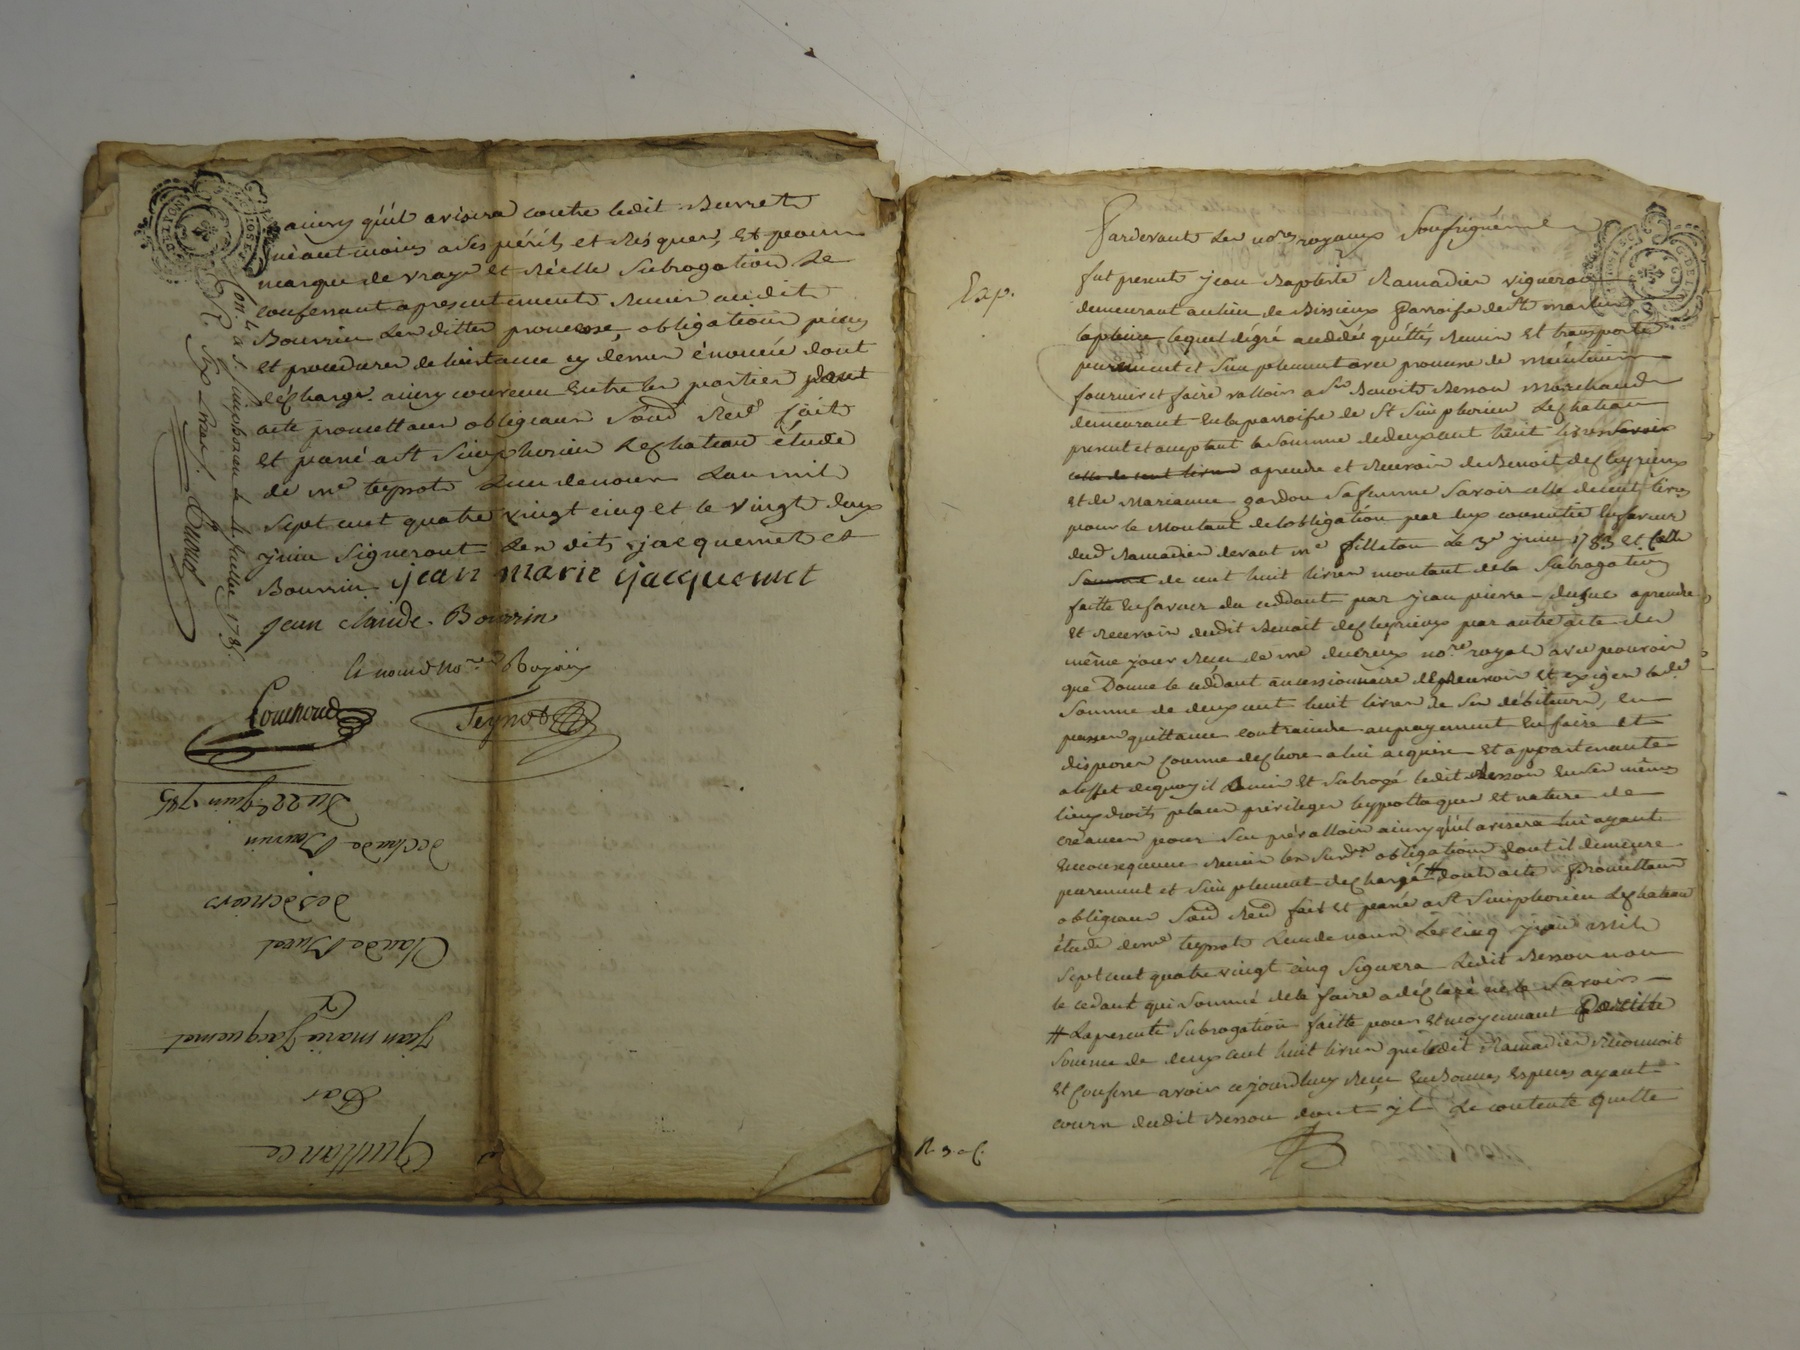 ainsy qu'il avisera contre ledit Burret
néantmoins a ses périls et risques, Et pour
marque de vraye et réelle Subrogation Le
confessant apresentement remis audit
Bourrin Les dittes promesse, obligation pieces
et procedures de linstance cy dessus énoncée dont
décharge. ainsy convenu Entre les parties dont
acte promettans obligeans Soud Red fait
Et passé a St Simphorien Lechateau étude
de me teyssot L'un de nous L'an mil
Sept cent quatre vingt cinq et le vingt deux
juin Signeront Les dits jacquemet et
Bourrin. jean marie jacquemet
jean claude. Bourrin
et nous nores Royaux
Teyssot
Du 22e juin 1785
de Claude Bourrin
des deniers
Claude Burret
&
jean marie jacquemet
Par
Quittance
Pardevant Les nores royaux Soussignés
Exp.
fut present jean Baptiste Ramadier vigneron
demeurant au lieu de Bissieux Parroisse de St martin
laplaine lequel de gré a cedé quitté, Remis Et transporté
purement et Simplement avec promesse de maintenir
fournir et faire valloir a Sr Benoit Besson Marchand
demeurant en la parroisse de St Simphorien Lechateau
present et acceptant la Somme de deux cent huit livres Savoir
celle de cent livres a prendre et Recevoir de Benoit Descleyrieux
et de Marianne gardon Sa femme Savoir celle de cent livres
pour le Montant de lobligation par eux consentie En faveur
dud Ramadier devant me fillston Le 3e juin 1783 Et Celle
Somme de cent huit livres montant de la Subrogation
faitte En faveur du cedant par jean pierre a prendre
Et recevoir dudit Benoit Descleyrieux par autre acte du
même jour Reçu de me ducreux nore royal avec pouvoir
que Donne le cedant au cessionnaire de Recevoir Et exiger lade
Somme de deux cent huit livres de Ses débiteurs, En
passer quittance contraindre au payement En faire Et
disposer comme de chose a lui acquise Et appartenante
a leffet de quoy il a mis Et Subrogé ledit Besson En Ses mêmes
lieux droits place privileges hypotteques et nature de
creances pour S'en prévalloir ainsy qu'il avisera lui ayant
En consequence Remis Les Susdes obligations dont il demeure
purement et Simplement dechargé # dont acte Promettans
obligeans Soud Red fait Et passé a St Simphorien Lechateau
étude de me teyssot L'un de nous Le cinq juin mil
Sept cent quatre vingt cinq Signera Ledit Besson non
le cedant qui Sommé de le faire a déclaré ne le Savoir
# La presente Subrogation faitte pour et moyennant Pareille
Somme de deux cent huit livres que ledit Ramadier Reconnoit
Et Confesse avoir ce jourdhuy Reçu En Bonnes Especes ayant
cours dudit Besson dont il Se contente quitte